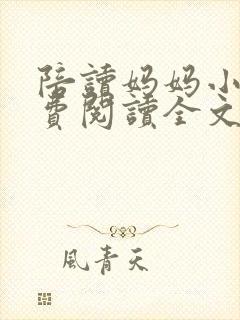 陪讀妈妈小
費閱讀全文
風青天